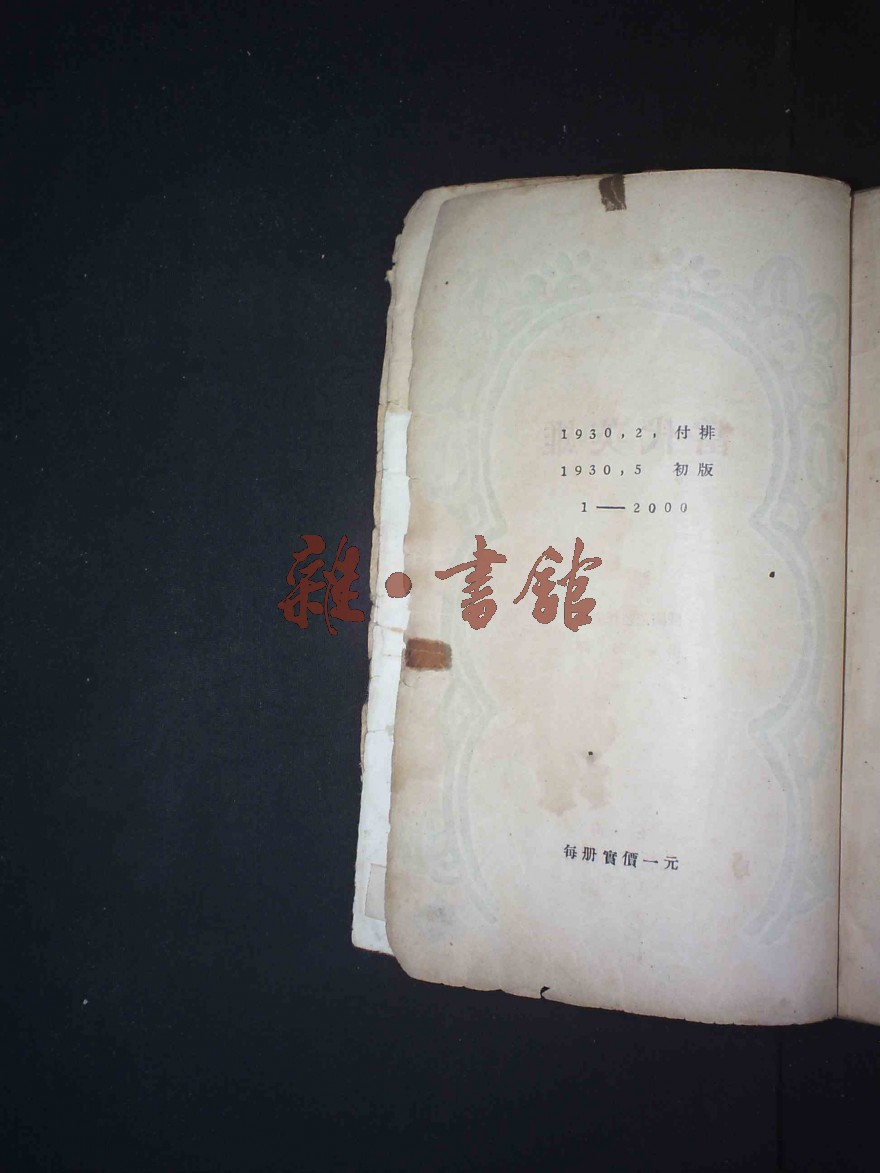 1930，2，付排
1930，5 初版
1——2000
雜·書館
每册實價一元